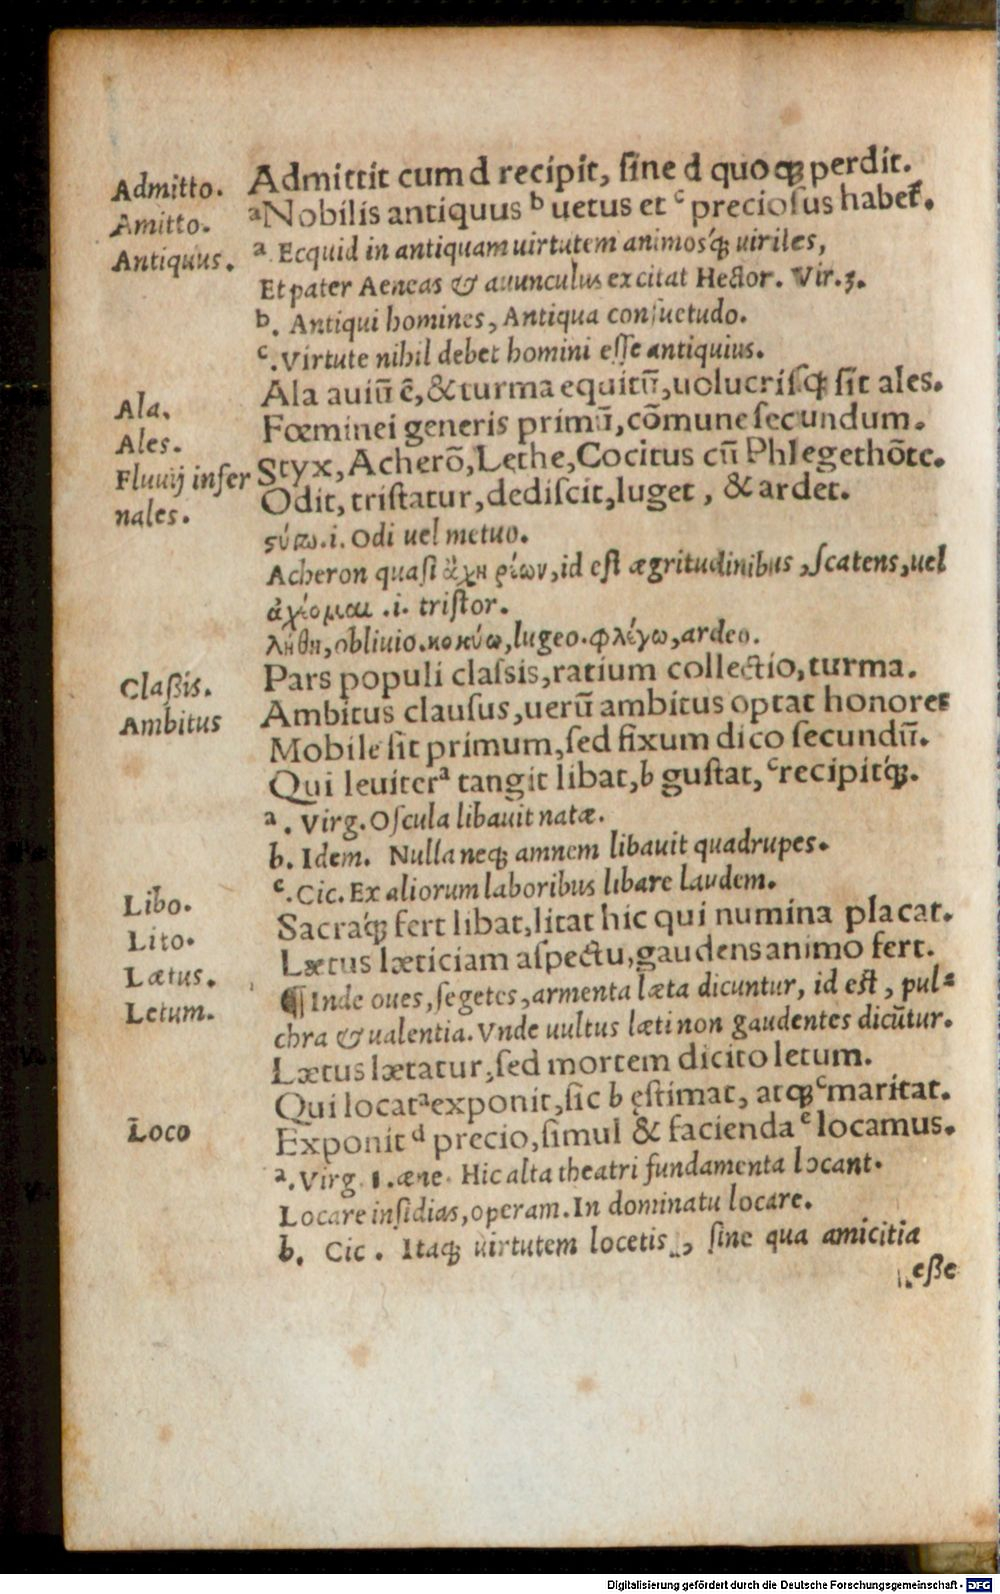 Admitto. Admittit cum d recipit, ſine d quoqꝫ perdit.
Amitto. ᵃNobilis antiquus ᵇ uetus et ᶜ precioſus habet᷑.
Antiquus. ᵃ Ecquid in antiquam uirtutem animosq́ꝫ uiriles,
Et pater Aeneas & auunculus excitat Hector. Vir.3.
ᵇ. Antiqui homines, Antiqua conſuetudo.
ᶜ. Virtute nihil debet homini eſſe antiquius.
Ala. Ala auiū ē, & turma equitū, uolucriſq́ꝫ ſit ales.
Ales. Fœminei generis primū, cōmune ſecundum.
Fluuij infer Styx, Acherō, Lęthe, Cocitus cū Phlegethōte.
nales. Odit, triſtatur, dediſcit, luget, & ardet.
ςύγω.i. Odi uel metuo.
Acheron quaſi ἄχη ῥέων, id eſt ægritudinibus, ſcatens, uel
ἀχέομαι .i. triſtor.
λήθη, obliuio. κοκύω, lugeo. φλέγω, ardeo.
Claßis. Pars populi claſsis, ratium collectio, turma.
Ambitus Ambitus clauſus, uerū ambitus optat honores
Mobile ſit primum, ſed fixum dico ſecundū.
Qui leuiterᵃ tangit libat, b guſtat, ᶜrecipitq́ꝫ.
ᵃ. Virg. Oſcula libauit natæ.
b. Idem. Nulla neqꝫ amnem libauit quadrupes.
ᶜ. Cic. Ex aliorum laboribus libare laudem.
Libo. Sacraq́ꝫ fert libat, litat hic qui numina placat.
Lito. Lætus læticiam aſpectu, gaudens animo fert.
Lætus. ¶ Inde oues, ſegetes, armenta læta dicuntur, id eſt, pul⸗
Letum. chra & ualentia. Vnde uultus læti non gaudentes dicūtur.
Lætus lætatur, ſed mortem dicito letum.
Qui locatᵃ exponit, ſic b ęſtimat, atqꝫᶜ maritat.
Loco Exponitᵈ precio, ſimul & faciendaᵉ locamus.
ᵃ. Virg. 1. æne. Hic alta theatri fundamenta locant.
Locare inſidias, operam. In dominatu locare.
b. Cic. Itaqꝫ uirtutem locetis, ſine qua amicitia
eße
Digitalisierung gefördert durch die Deutsche Forschungsgemeinschaft - DFG